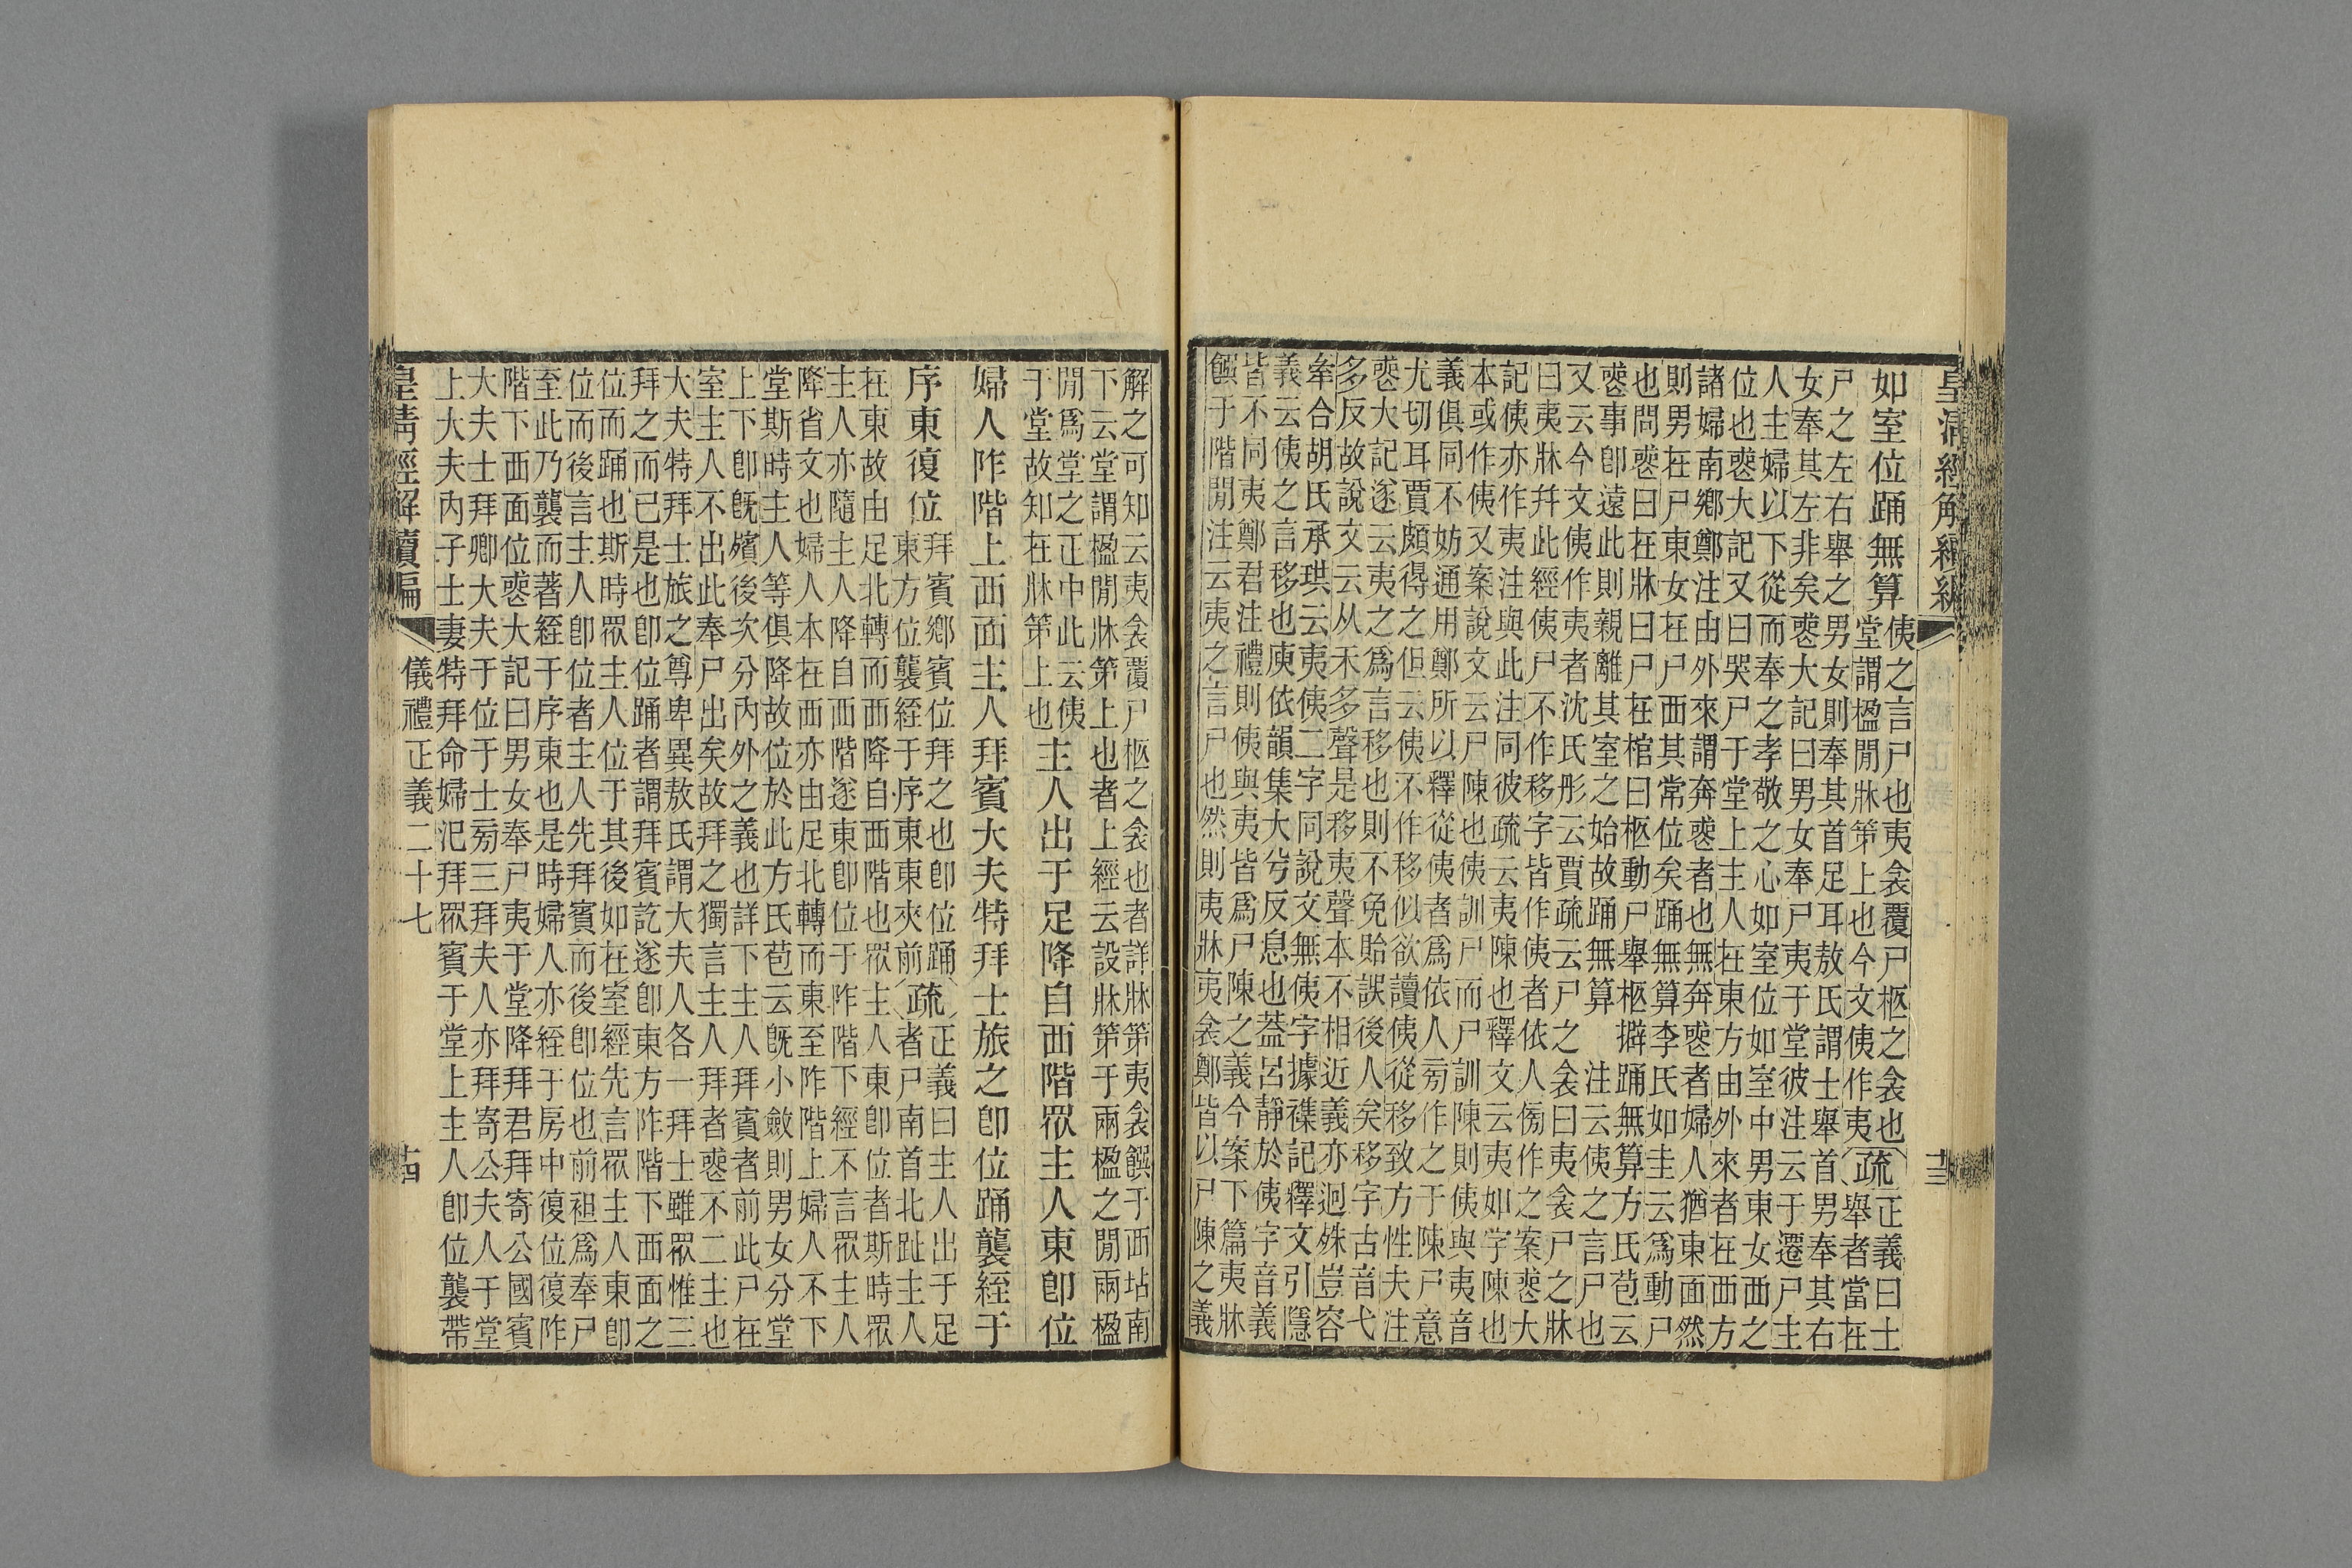 皇清經解續編
十三
如室位踊無算
侇之言尸也夷衾覆尸柩之衾也
堂謂楹閒牀第上也今文侇作夷
疏
正義曰士
舉者當在
尸之左右舉之男女則奉其首足耳敖氏謂士舉首男奉其右
女奉其左非矣喪大記曰男女奉尸夷于堂彼注云于遷尸主
人主婦以下從而奉之孝敬之心如室位如室中男東女西之
位也喪大記又曰哭尸于堂上主人在東方由外來者在西方
諸婦南鄉鄭注由外來謂奔喪者也無奔喪者婦人猶東面然
則男在尸東女在尸西其常位矣踊無算李氏如圭云爲動尸
也問喪曰在牀曰尸在棺曰柩動尸舉柩擗踊無算方氏苞云
喪事卽遠此則親離其室之始故踊無算 注云侇之言尸也
又云今文侇作夷者沈氏彤云賈疏云尸之衾曰夷衾尸之牀
曰夷牀幷此經侇尸不作移字皆作侇者依人傍作之案喪大
記侇亦作夷注與此注同彼疏云夷陳也釋文云夷如字陳也
本或作侇又案說文云尸陳也侇訓尸而尸訓陳則侇與夷音
義俱同不妨通用鄭所以釋從侇者爲依人旁作之于陳尸意
尤切耳賈頗得之但云侇不作移似欲讀侇從移致方性夫注
喪大記遂云夷之爲言移也則不免貽誤後人矣移字古音弋
多反故說文云从禾多聲是移夷聲本不相近義亦迥殊豈容
牽合胡氏承珙云夷侇二字同說文無侇字據襍記釋文引隱
義云侇之言移也庾依韻集大兮反息也葢呂靜於侇字音義
皆不同夷鄭君注禮則侇與夷皆爲尸陳之義今案下篇夷牀
饌于階閒注云夷之言尸也然則夷牀夷衾鄭皆以尸陳之義
解之可知云夷衾覆尸柩之衾也者詳牀第夷衾饌于西坫南
下云堂謂楹閒牀第上也者上經云設牀第于兩楹之閒兩楹
閒爲堂之正中此云侇
于堂故知在牀第上也
主人出于足降自西階眾主人東卽位
婦人阼階上西面主人拜賓大夫特拜士旅之卽位踊襲絰于
序東復位
拜賓鄉賓位拜之也卽位踊
東方位襲絰于序東東夾前
疏
正義曰主人出于足
者尸南首北趾主人
在東故由足北轉而西降自西階也眾主人東卽位者斯時眾
主人亦隨主人降自西階遂東卽位于阼階下經不言眾主人
降省文也婦人本在西亦由足北轉而東至阼階上婦人不下
堂斯時主人等俱降故位於此方氏苞云旣小斂則男女分堂
上下卽旣殯後次分內外之義也詳下主人拜賓者前此尸在
室主人不出此奉尸出矣故拜之獨言主人拜者喪不二主也
大夫特拜士旅之尊卑異敖氏謂大夫人各一拜士雖眾惟三
拜之而已是也卽位踊者謂拜賓訖遂卽東方阼階下西面之
位而踊也斯時眾主人位于其後如在室經先言眾主人東卽
位而後言主人卽位者主人先拜賓而後卽位也前袒爲奉尸
至此乃襲而著絰于序東也是時婦人亦絰于房中復位復阼
階下西面位喪大記曰男女奉尸夷于堂降拜君拜寄公國賓
大夫士拜卿大夫于位于士旁三拜夫人亦拜寄公夫人于堂
上大夫內子士妻特拜命婦氾拜眾賓于堂上主人卽位襲帶
皇清經解續編
儀禮正義二十七
十四